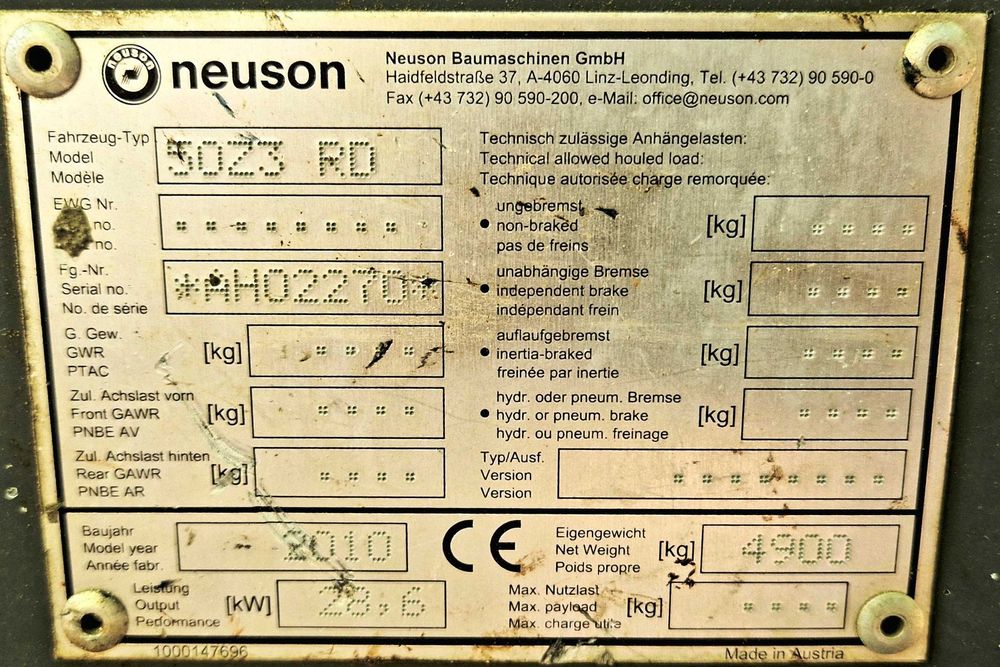 NEUSON neuson
Neuson Baumaschinen GmbH
Haidfeldstraße 37, A-4060 Linz-Leonding, Tel. (+43 732) 90 590-0
Fax (+43 732) 90 590-200, e-Mail: office@neuson.com
Fahrzeug-Typ
Model
Modèle
50Z3 RD
EWG Nr.
no.
no.
Fg.-Nr.
Serial no.
No. de série
*AH02270*
G. Gew.
GWR
PTAC
[kg]
Zul. Achslast vorn
Front GAWR
PNBE AV
[kg]
Zul. Achslast hinten
Rear GAWR
PNBE AR
[kg]
Technisch zulässige Anhängelasten:
Technical allowed houled load:
Technique autorisée charge remorquée:
ungebremst
• non-braked
pas de freins
[kg]
unabhängige Bremse
• independent brake
indépendant frein
[kg]
auflaufgebremst
• inertia-braked
freinée par inertie
[kg]
hydr. oder pneum. Bremse
• hydr. or pneum. brake
hydr. ou pneum. freinage
[kg]
Typ/Ausf.
Version
Version
Baujahr
Model year
Année fabr.
2010
CE
Eigengewicht
Net Weight
Poids propre
[kg]
4900
Leistung
Output
Performance
[kW]
28,6
Max. Nutzlast
Max. payload
Max. charge utile
[kg]
1000147696
Made in Austria